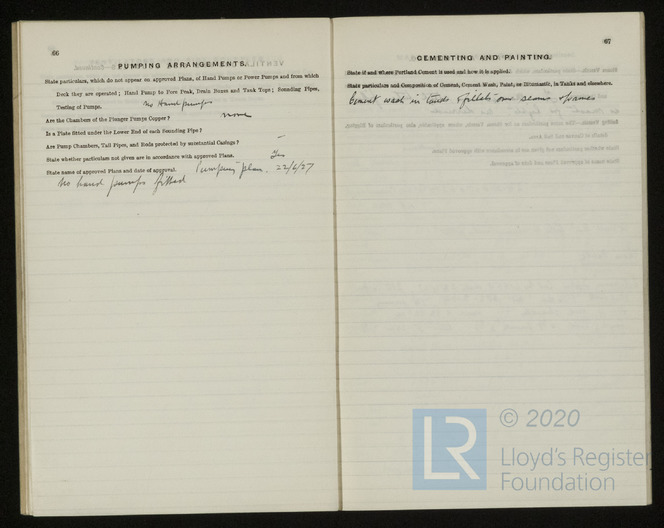 66
PUMPING ARRANGEMENTS.
State particulars, which do not appear on approved Plans, of Hand Pumps or Power Pumps and from which
Deck they are operated; Hand Pump to Fore Peak, Drain Hoses and Tank Tops; Sounding Pipes,
Testing of Pumps. No Hand pumps
Are the Chambers of the Plunger Pumps Copper? none
Is a Plate fitted under the Lower End of each Sounding Pipe?
Are Pump Chambers, Tail Pipes, and Rods protected by substantial Casings? –
State whether particulars not given are in accordance with approved Plans. Yes
State name of approved Plans and date of approval. Pumping plan. 22/6/27
No hand pumps fitted
67
CEMENTING AND PAINTING.
State if and where Portland Cement is used and how it is applied.
State particulars and Composition of Cement, Cement Wash, Paint, or Bitumastic, in Tanks and elsewhere.
Cement wash in tanks & fillets over seams & frames
LR
© 2020
Lloyd's Register
Foundation